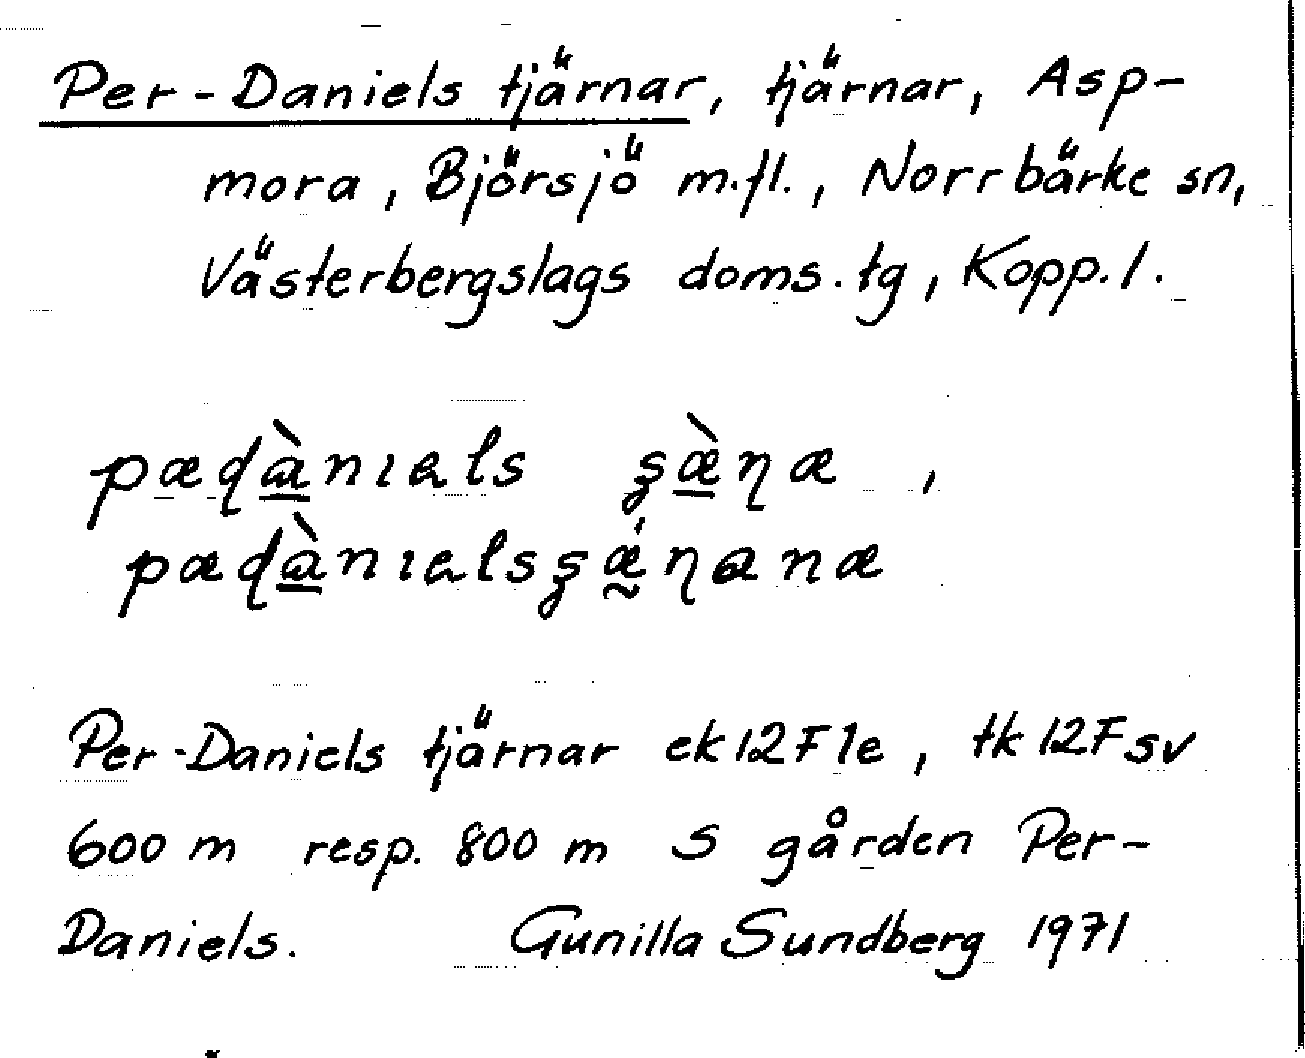 Per-Daniels tjärnar, tjärnar, Asp-
mora, Björsjö m.fl., Norrbärke sn,
Västerbergslags doms.tg, Kopp.l.
pædànıals ʂæ̀ɳæ,
pædànıalsʂǽɳanæ
Per-Daniels tjärnar ek12F1e, tk12Fsv
600 m resp. 800 m S gården Per-
Daniels. Gunilla Sundberg 1971